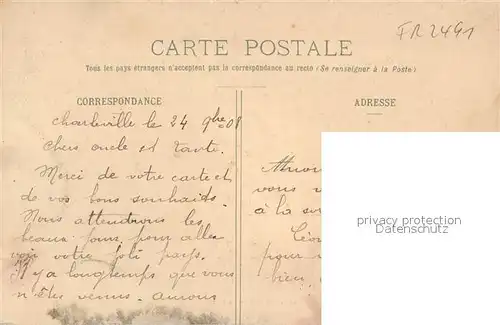 FR 2491
CARTE POSTALE
Tous les pays étrangers n'acceptent pas la correspondance au recto (Se renseigner à la Poste)
CORRESPONDANCE
ADRESSE
Charleville le 24 9bre 08
Chers oncle et tante
Merci de votre carte et
de vos bons souhaits.
Nous attendrons les
beaux jours pour aller
voir votre joli pays.
Il y a longtemps que vous
n'êtes venus. aurons
vous
à la
pour
bien
privacy protection
Datenschutz